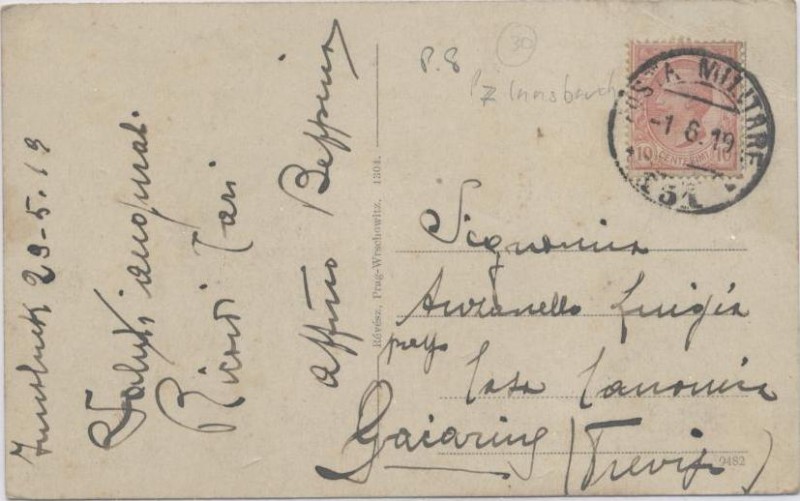 Innsbruck 29-5.19
Saluti
Ricordi cari
Aff/mo Beppino
Révész, Prag-Wrschowitz, 1304.
P. 8
30
Pz Innsbruck
POSTA MILITARE
-1 6.19
151
10 CENTESIMI 10
Signorina
Anzanello Luigia
Casa Canonica
Gaiarine (Treviso)
9482